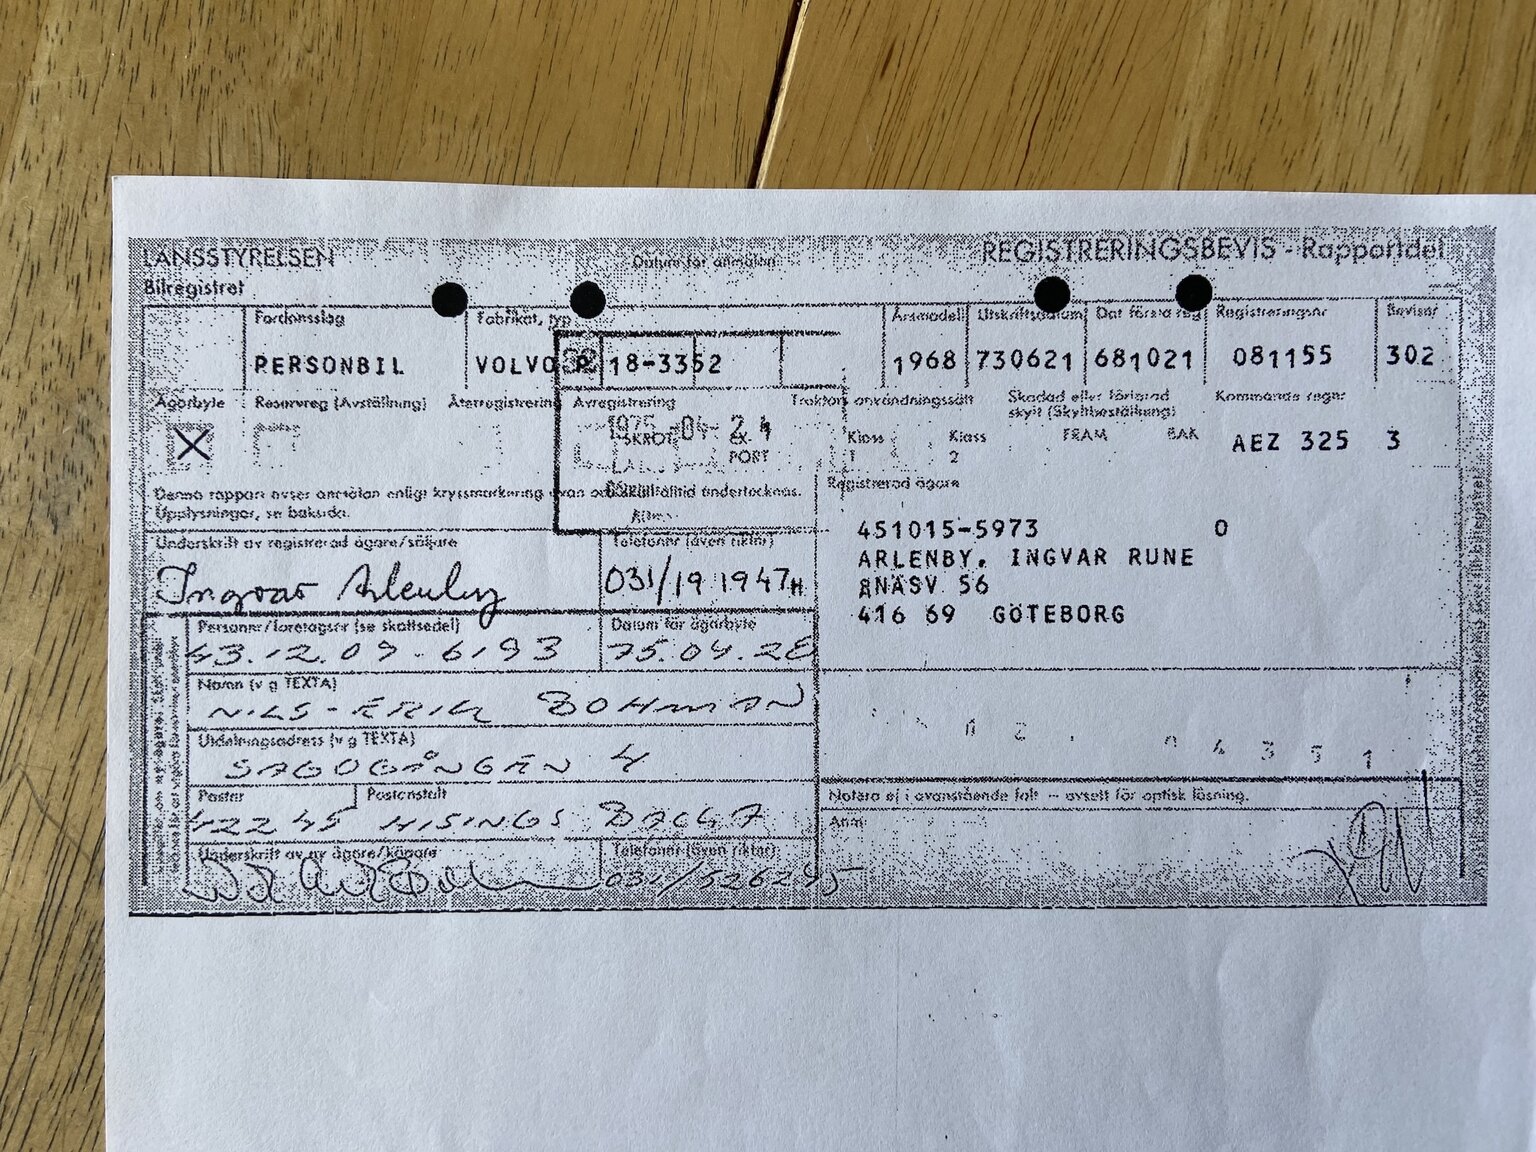 LÄNSSTYRELSEN
Bilregistret
Datum för anmälan
REGISTRERINGSBEVIS - Rapportdel
Fordonsslag
PERSONBIL
Fabrikat, typ
VOLVO
18-3352
Årsmodell
1968
Utskriftsdatum
730621
Dat första reg
681021
Registreringsnr
081155
Bevisnr
302
Ägarbyte
Reservreg (Avställning)
Återregistrering
Avregistrering
Traktors användningssätt
Skadad eller förlorad
skylt (Skyltbeställning)
Kommande regnr
X
1975 -04- 24
SKROT
EX
PORT
Klass
1
Klass
2
FRAM
BAK
AEZ 325 3
Denna rapport avser anmälan enligt kryssmarkering ovan och skall alltid undertecknas.
Upplysningar, se baksida.
Registrerad ägare
451015-5973 0
ARLENBY, INGVAR RUNE
ÄNÄSV 56
416 69 GÖTEBORG
Underskrift av registrerad ägare/säljare
Ingvar Arlenby
Telefonnr (även riktnr)
031/19 19 47
Personnr/företagsnr (se skattsedel)
43.12.09-6193
Datum för ägarbyte
75.04.28
Namn (v g TEXTA)
NILS-ERIK BOHMAN
Utdelningsadress (v g TEXTA)
SAGOGÅNGEN 4
Postnr
Postanstalt
422 45 HISINGS BACKA
Underskrift av ny ägare/köpare
Telefonnr (även riktnr)
031/526245
Notera ej i ovanstående fält – avsett för optisk läsning.
Anm